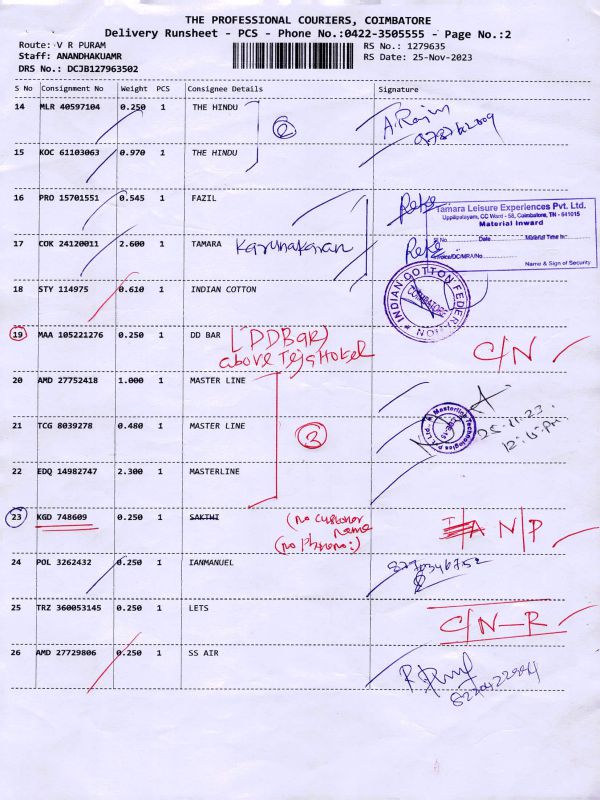 THE PROFESSIONAL COURIERS, COIMBATORE
Delivery Runsheet - PCS - Phone No.:0422-3505555 - Page No.:2
Route: V R PURAM
RS No.: 1279635
Staff: ANANDHAKUAMR
RS Date: 25-Nov-2023
DRS No.: DCJB127963502
S No Consignment No Weight PCS Consignee Details Signature
14 MLR 40597104 0.250 1 THE HINDU
2
A. Raju
15 KOC 61103063 0.970 1 THE HINDU
16 PRO 15701551 0.545 1 FAZIL
Tamara Leisure Experiences Pvt. Ltd.
Uppilipalayam, CC Ward - 58, Coimbatore, TN - 641015
Material Inward
Sl.No. Date Material Time In:
Invoice/DC/MRA/No
Name & Sign of Security
17 COK 24120011 2.600 1 TAMARA Karunakaran
18 STY 114975 0.610 1 INDIAN COTTON
INDIAN COTTON FEDERATION
COIMBATORE
19 MAA 105221276 0.250 1 DD BAR (DDBar)
above Teja Hotel
C/N
20 AMD 27752418 1.000 1 MASTER LINE
21 TCG 8039278 0.480 1 MASTER LINE
3
Masterline Technologies Pvt Ltd
25.11.23
22 EDQ 14982747 2.300 1 MASTERLINE
23 KGD 748609 0.250 1 SAKTHI (no customer name
(no phone no:)
N/P
24 POL 3262432 0.250 1 IANMANUEL
8270346752
25 TRZ 360053145 0.250 1 LETS
C/N-R
26 AMD 27729806 0.250 1 SS AIR